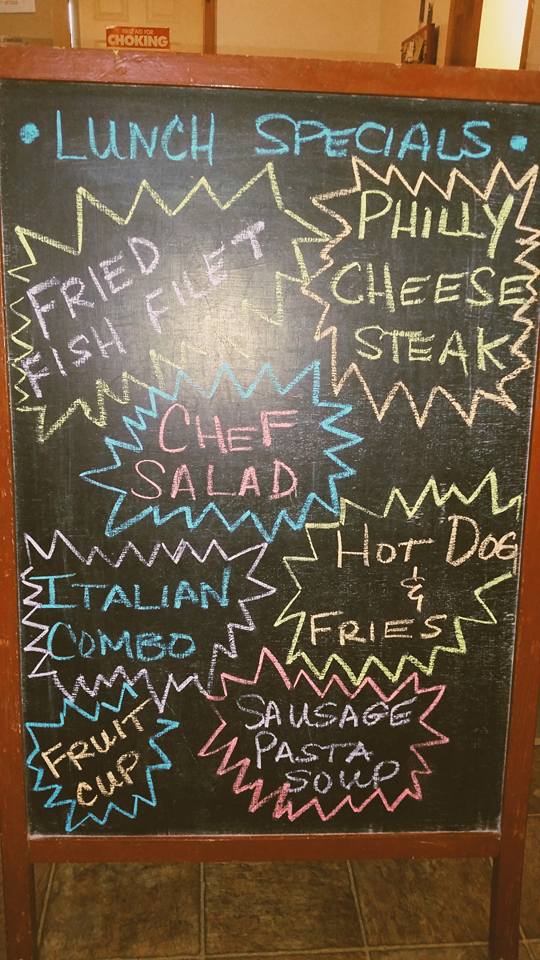 FIRST AID FOR
CHOKING
• LUNCH SPECIALS •
FRIED
FISH FILET
PHILLY
CHEESE
STEAK
CHEF
SALAD
HOT DOG
&
FRIES
ITALIAN
COMBO
FRUIT
CUP
SAUSAGE
PASTA
SOUP